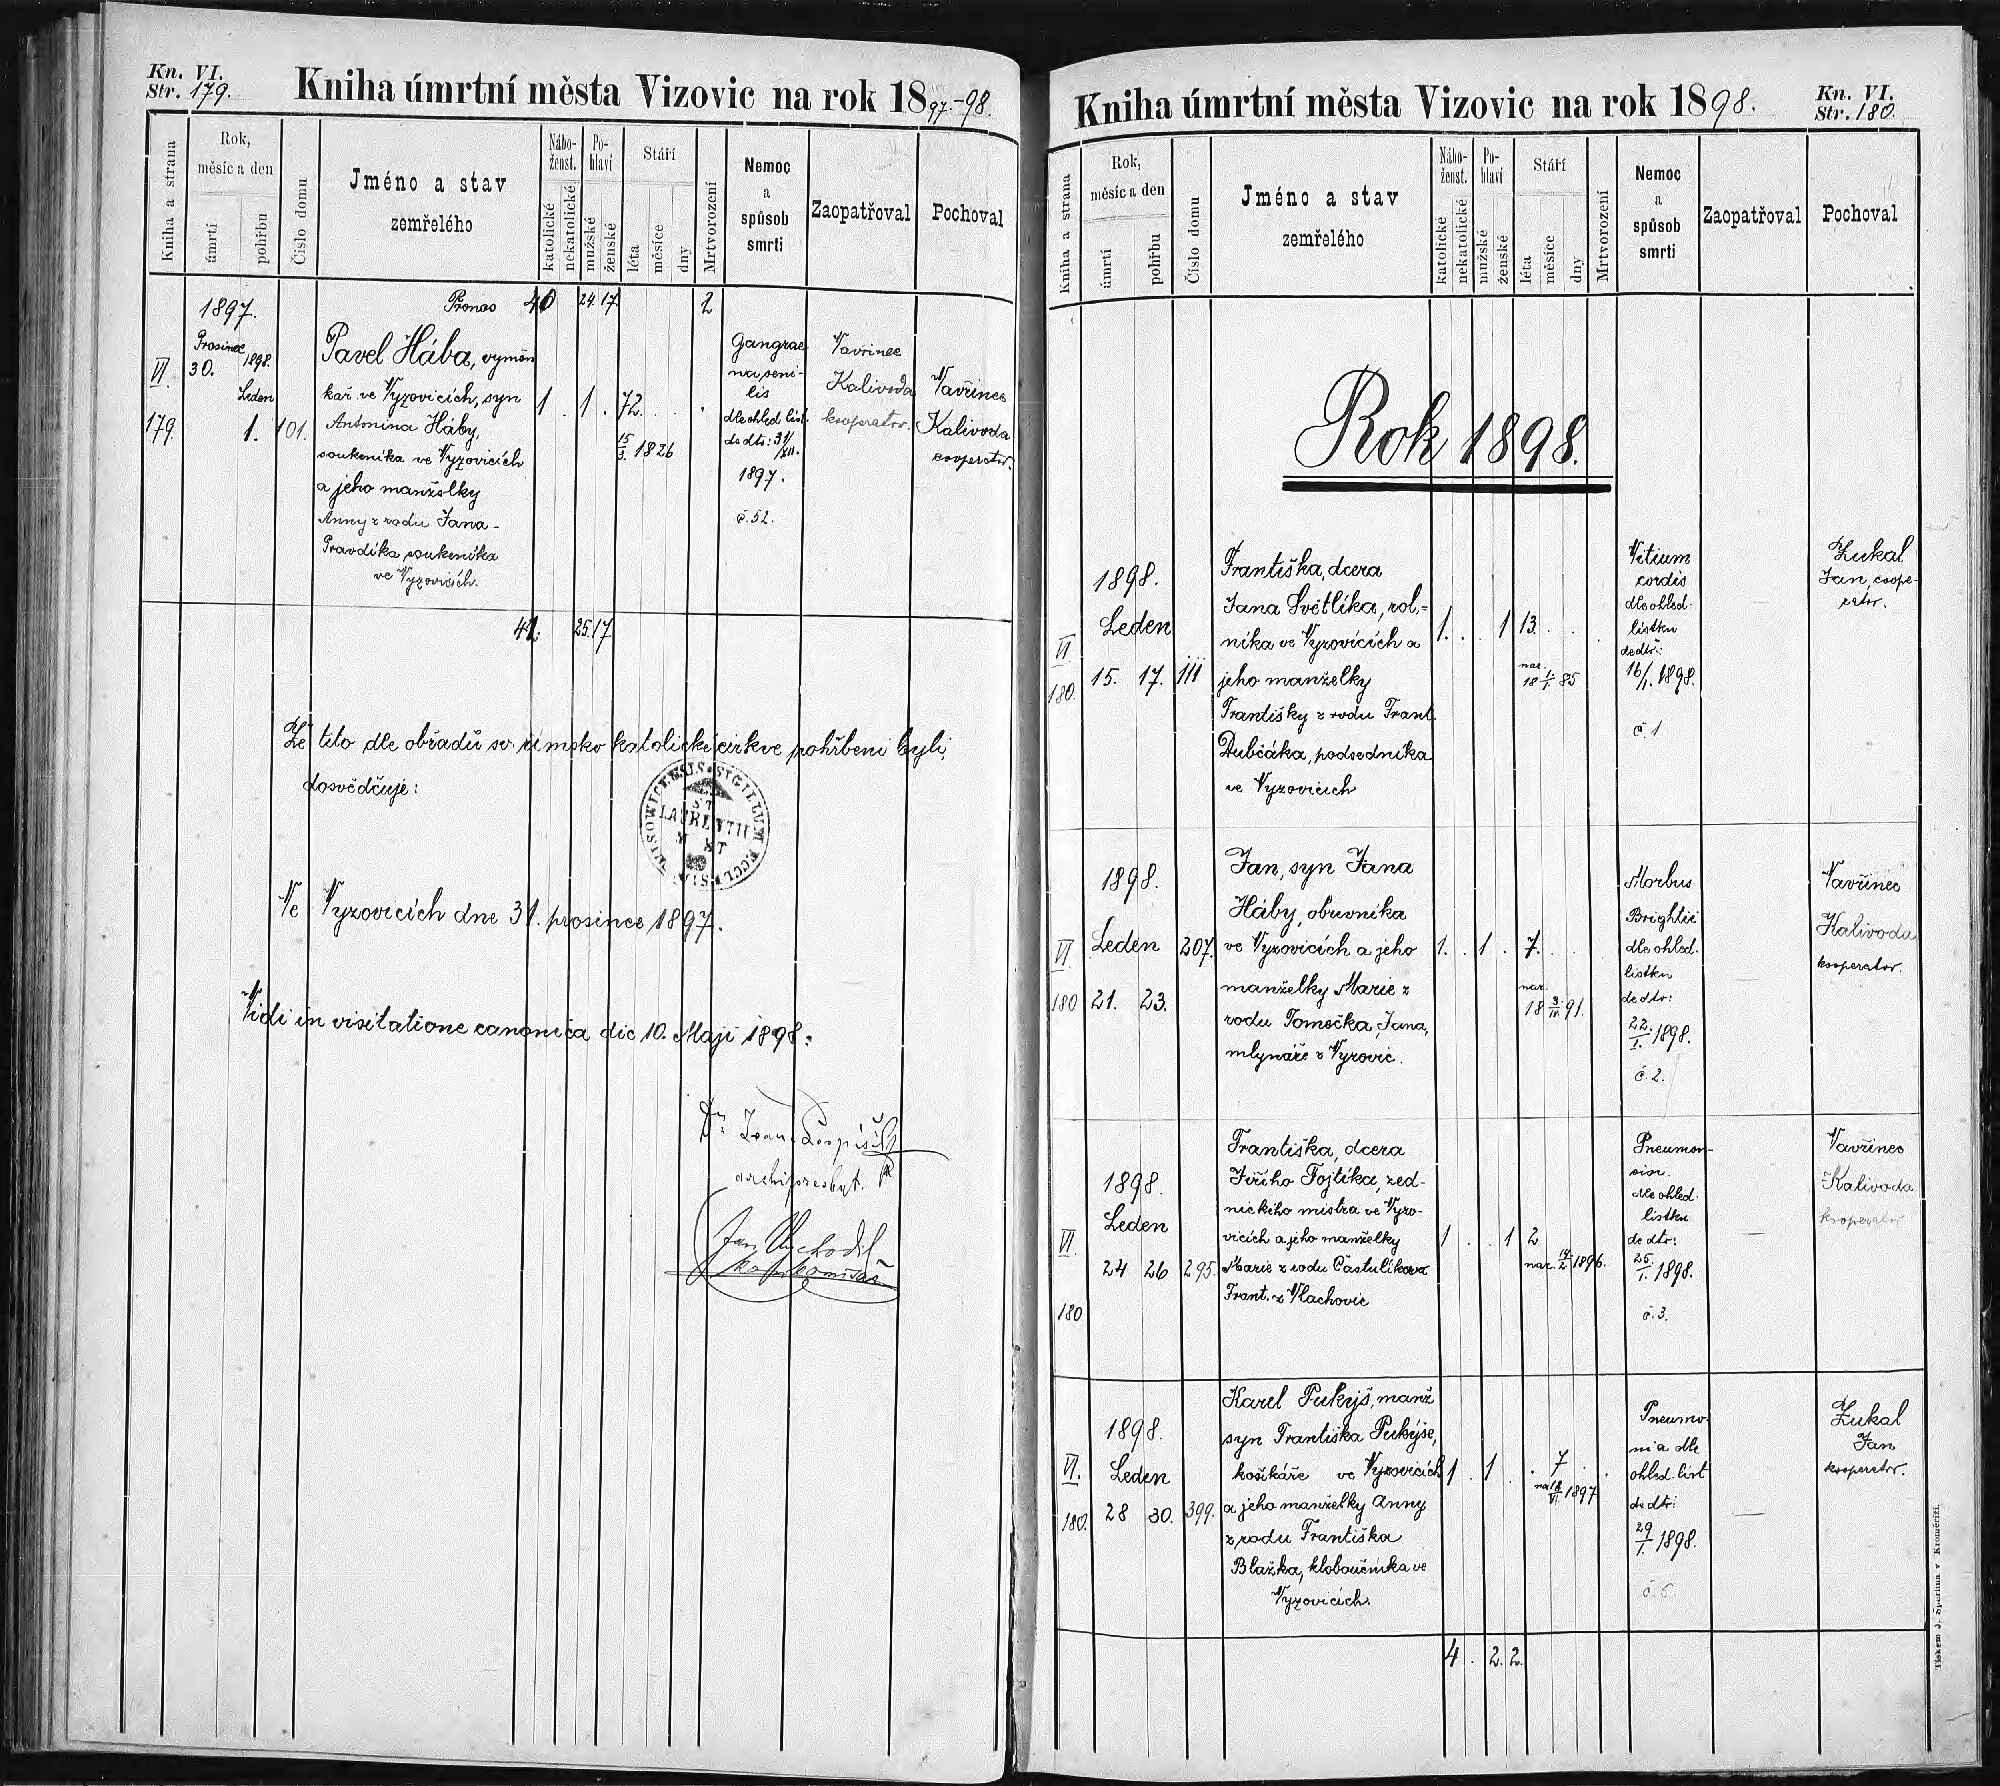 Kn. VI.
Str. 179.
Kniha úmrtní města Vizovic na rok 1897.-98.
Kniha a strana
Rok,
měsíc a den
úmrtí
pohřbu
Číslo domu
Jméno a stav
zemřelého
Nábo-
ženst.
katolické
nekatolické
Po-
hlaví
mužské
ženské
Stáří
léta
měsíce
dny
Mrtvorození
Nemoc
a
spůsob
smrti
Zaopatřoval
Pochoval
1897.
Prosinec
30.
1898.
Leden
1.
VI.
179.
101.
Přenos 40 24 17 2
Pavel Hába, výměn
kář ve Vyzovicích, syn
Antonína Háby,
soukeníka ve Vyzovicích
a jeho manželky
Anny z rodu Jana
Pravdíka soukeníka
ve Vyzovicích.
1 . 1 . 72. . .
15/3. 1826
Gangrae
na seni-
lis
dle ohled. líst.
de dto: 31/XII.
1897.
č. 52.
Vavřinec
Kalivoda
kooperator.
Vavřinec
Kalivoda
cooperator.
41. 25. 17
Že tito dle obřadů sv. římsko katolické církve pohřbeni byli,
dosvědčuje:
SIGILLUM ECCLESIAE WISOWICENSIS
ST
LAURENTII
M
Ve Vyzovicích dne 31. prosince 1897.
Vidi in visitatione canonica die 10. Maji 1898:
archipresbyt.
Jan Vychodil
Kn. VI.
Str. 180.
Kniha úmrtní města Vizovic na rok 1898.
Kniha a strana
Rok,
měsíc a den
úmrtí
pohřbu
Číslo domu
Jméno a stav
zemřelého
Nábo-
ženst.
katolické
nekatolické
Po-
hlaví
mužské
ženské
Stáří
léta
měsíce
dny
Mrtvorození
Nemoc
a
spůsob
smrti
Zaopatřoval
Pochoval
Rok 1898.
VI.
180.
1898.
Leden
15. 17. 111
Františka, dcera
Jana Světlíka, rol-
níka ve Vyzovicích a
jeho manželky
Františky z rodu Frant.
Dubčáka, podsedníka
ve Vyzovicích
1. . . 1 13. . . .
nar.
18 1/1. 85
Vitium
cordis
dle ohled.
lístku
de dto:
16/1. 1898.
č. 1
Zukal
Jan, coope-
rator.
VI.
180
1898.
Leden
21. 23.
207.
Jan, syn Jana
Háby, obuvníka
ve Vyzovicích a jeho
manželky Marie z
rodu Tomečka, Jana,
mlynáře z Vyzovic.
1. . 1 . 7. . .
nar.
18 3/IV. 91.
Morbus
Brightii
dle ohled.
lístku
de dto:
22./I. 1898.
č. 2.
Vavřinec
Kalivoda
kooperator.
VI.
180
1898.
Leden
24 26 295.
Františka, dcera
Jiřího Fojtíka, zed-
nického mistra ve Vyzo-
vicích a jeho manželky
Marie z rodu Častulíkova
Frant. z Vlachovic
1 . . 1 2
nar. 14/2. 1896.
dle ohled.
lístku
de dto:
25/1. 1898.
č. 3.
Vavřinec
Kalivoda
kooperator
VI.
180.
1898.
Leden
28 30. 399.
Karel Pukýš, manž
syn Františka Pukýše,
košíkáře ve Vyzovicích
a jeho manželky Anny
z rodu Františka
Blažka, kloboučníka ve
Vyzovicích.
1 . 1 . . 7 . .
1897
Pneumo-
nia dle
ohled. líst
de dto:
29/1. 1898.
č. 5.
Zukal
Jan
kooperator.
4 . 2. 2.
Tiskem J. Šperlina v Kroměříži.